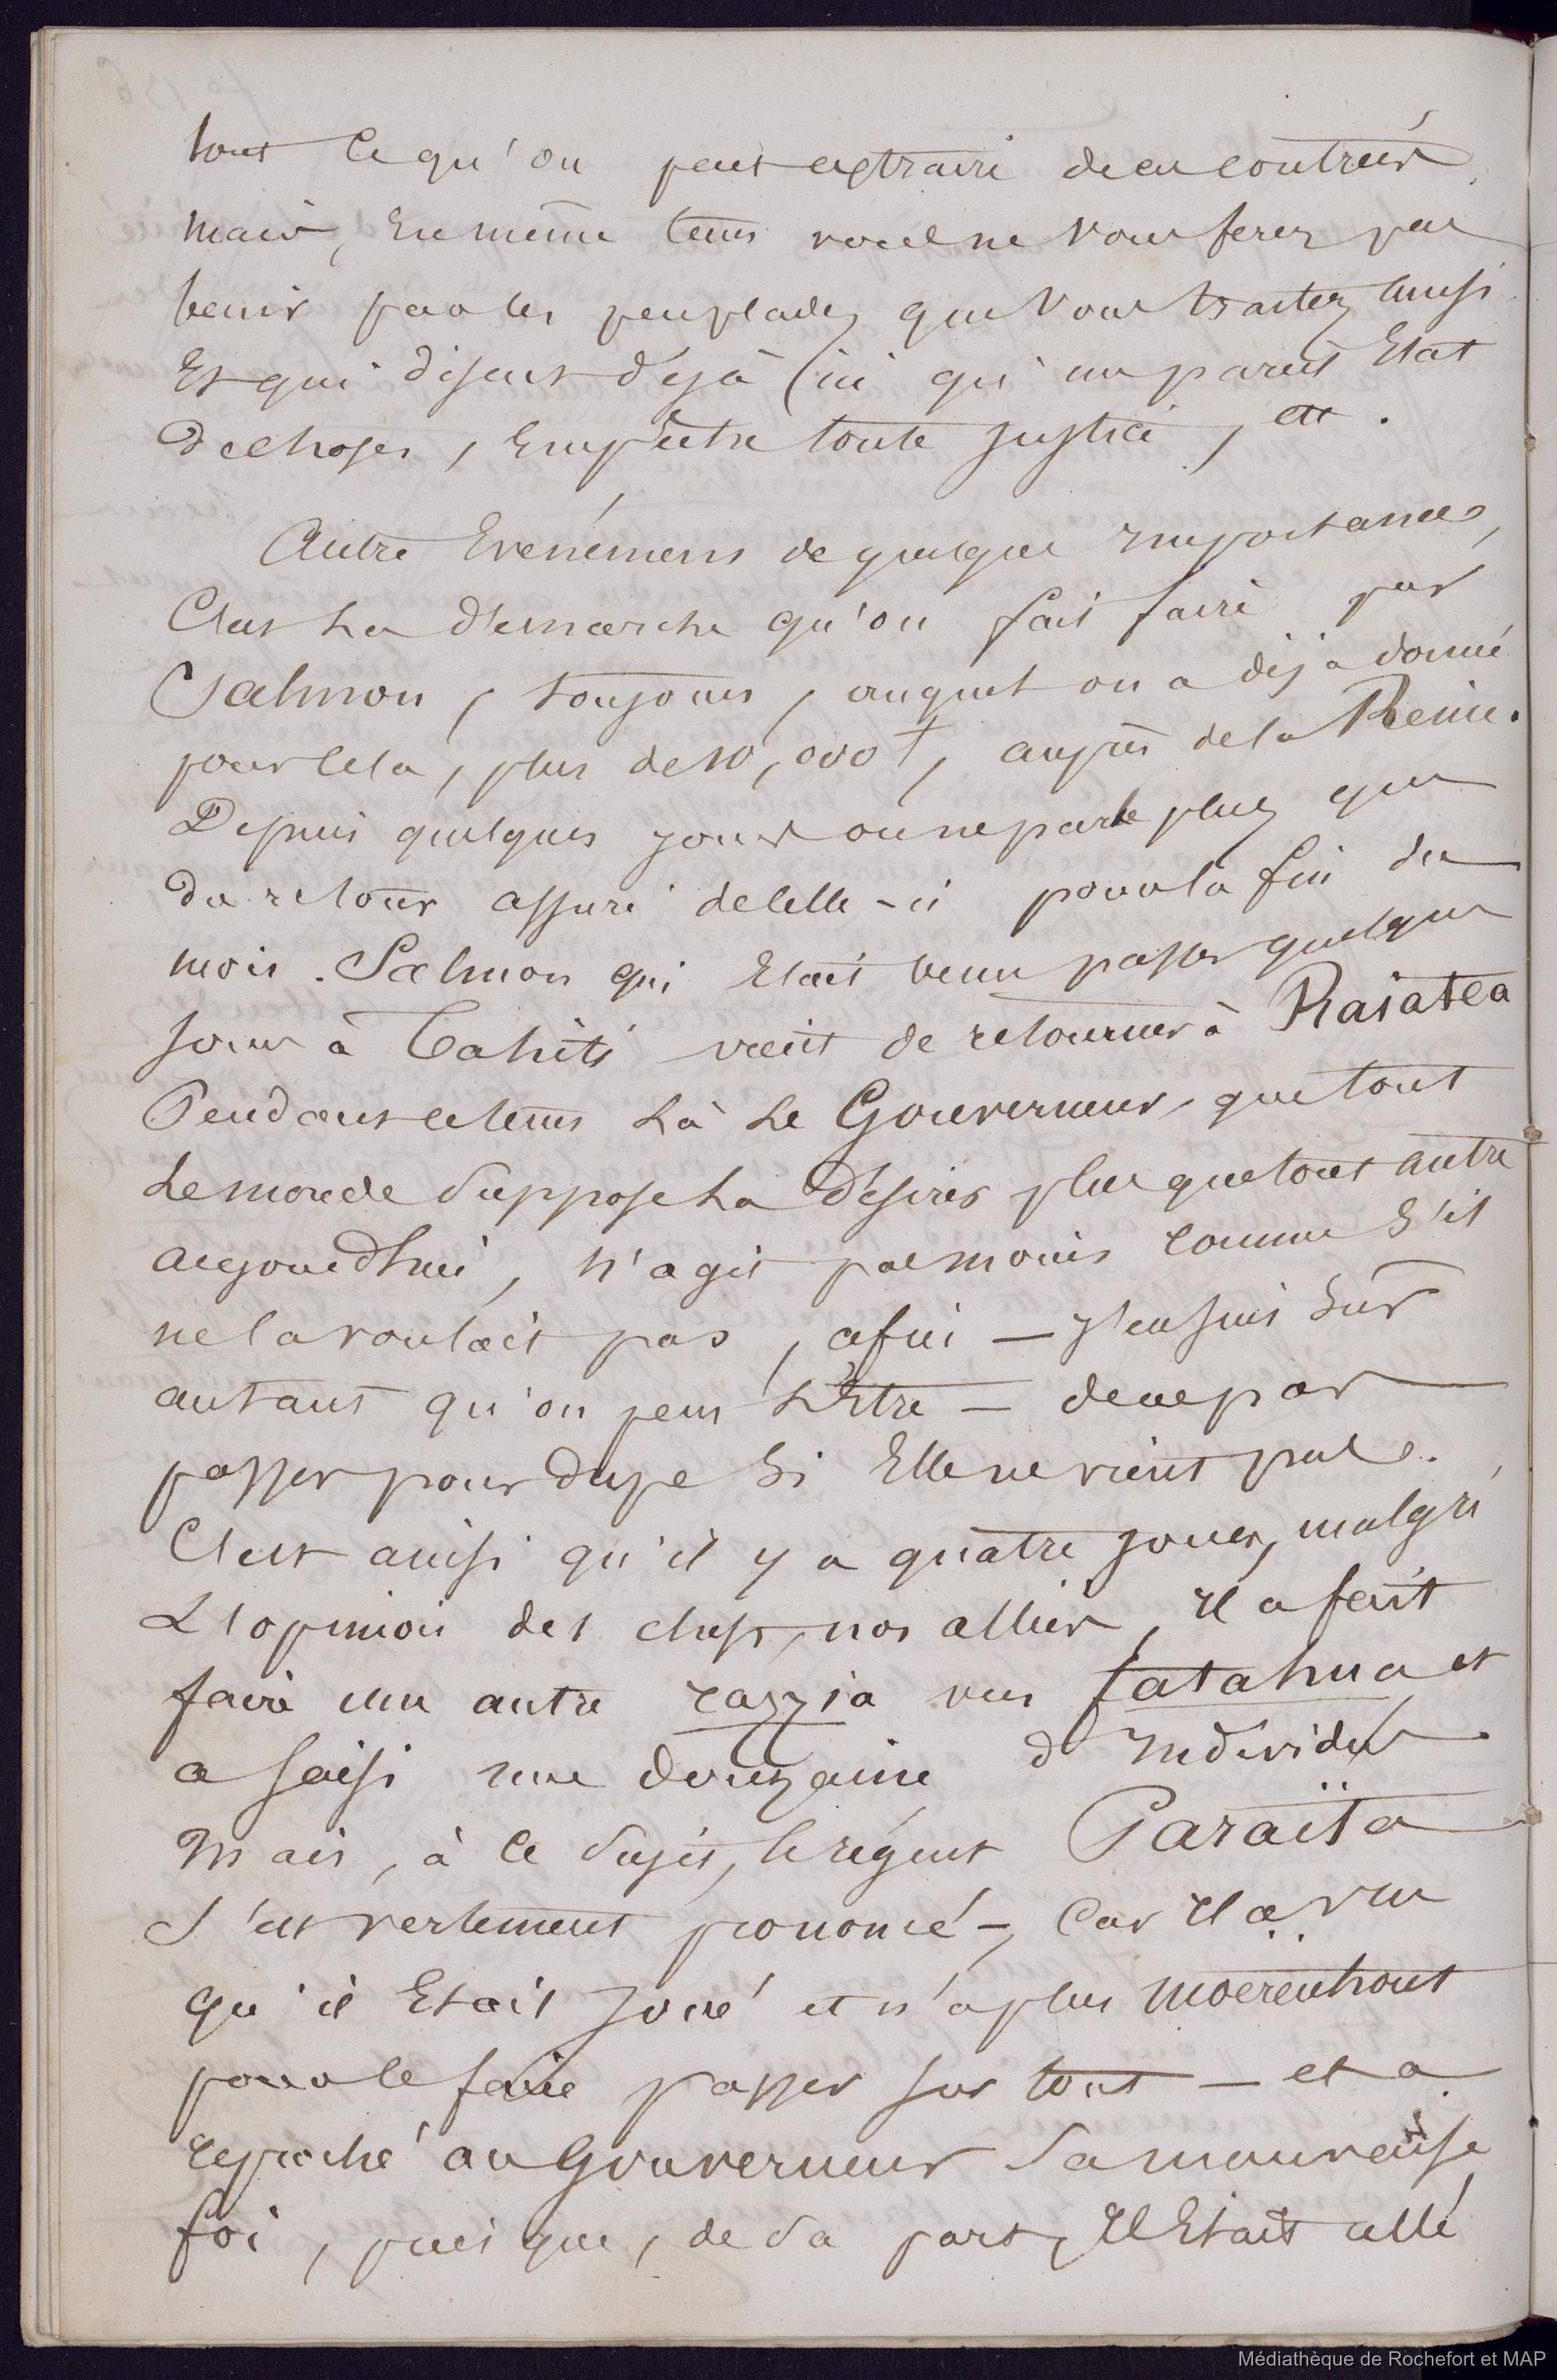 tout ce qu'on peut extraire de ces contrées
mais, En même tems vous ne vous ferez pas
benir par les peuplades que vous traitez ainsi
Et qui disent déjà (ici qu'un pareil Etat
de choses, Empêche toute justice, etc.
Autre Evénemens de quelque Importance,
C'est La démarche qu'on fait faire par
Salmon, toujours, auquel on a déjà donné
pour cela, plus de 10,000 f, auprès de la Reine.
Depuis quelques jours on ne parle plus que
du retour assuré de celle-ci pour la fin du
mois. Salmon qui Etait venu passer quelques
jours à Tahiti vient de retourner à Raiatea
Pendant ce tems Là Le Gouverneur que tout
Le monde Suppose La désirer plus que tout autre
aujourd'hui, n'agit pas moins comme S'il
ne la voulait pas, afin — j'en suis Sûr
autant qu'on peut L'Etre — de ne pas
passer pour dupe Si Elle ne vient pas.
C'est ainsi qu'il y a quatre jours, malgré
L'opinion des chefs, nos alliés, Il a fait
faire une autre razzia vers fatahua et
a saisi une douzaine d'Individus.
Mais, à ce Sujet, le régent Paraïta
S'est vertement prononcé —, Car Il a vu
qu'il Etait joué et n'a plus Moërenhout
pour le faire passer sur tout — et a
reproché au Gouverneur Sa mauvaise
foi, puisque, de Sa part, Il Etait allé
Médiathèque de Rochefort et MAP